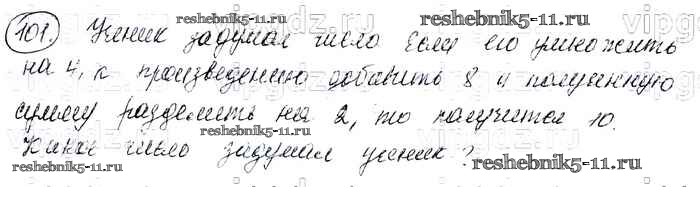 reshebnik5-11.ru
101. Ученик задумал число Если его умножить
на 4, к произведению добавить 8 и полученную
сумму разделить на 2, то получится 10.
reshebnik5-11.ru
Какое число задумал ученик?
reshebnik5-11.ru